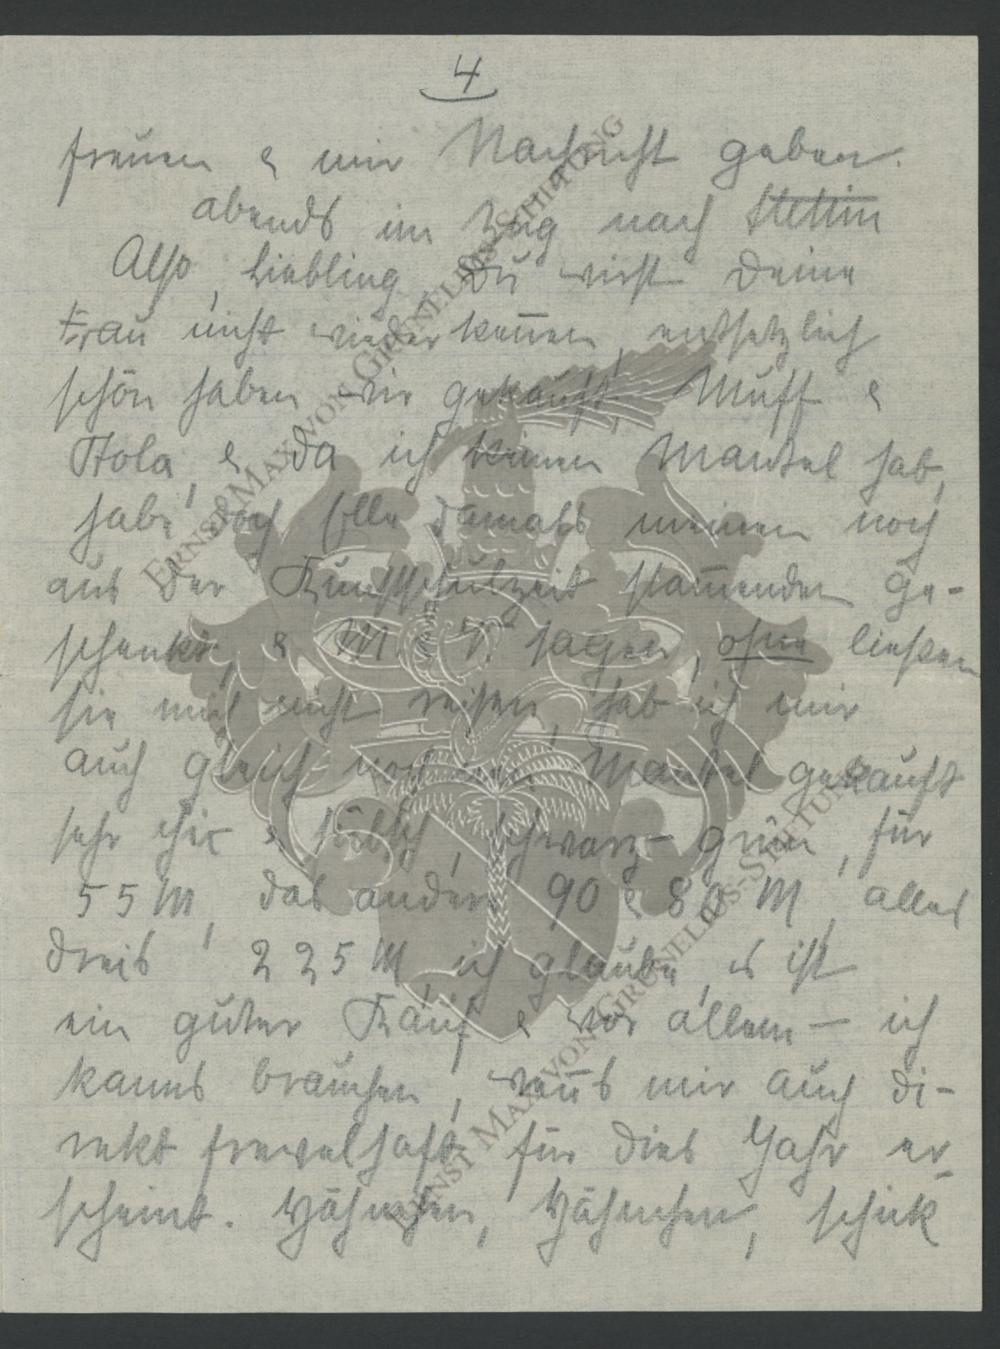 4
freuen & mir Nachricht geben.
abends im Zug nach Stettin
Also, Liebling, Du wirst Deine
Frau nicht wiederkennen, entsetzlich
schön haben wir gekauft. Muff &
Stola, & da ich keinen Mantel hab,
habe doch Elle damals meinen noch
aus der Kunstschulzeit stam̅enden ge-
schenkt, & M. sagen, ohne liessen
sie mich nicht reisen, hab ich mir
auch gleich noch den Mantel gekauft
sehr chic & hübsch, schwarz-grün, für
55 M, das andere 90 & 80 M, alles
dreis 225 M, ich glaube, es ist
ein guter Kauf & vor allem — ich
kanns brauchen, wens mir auch di-
rekt frevelhaft für dies Jahr er-
scheint. Hähnchen, Hähnchen, schick
ERNST MAX VON GRUNELIUS-STIFTUNG
ERNST MAX VON GRUNELIUS-STIFTUNG